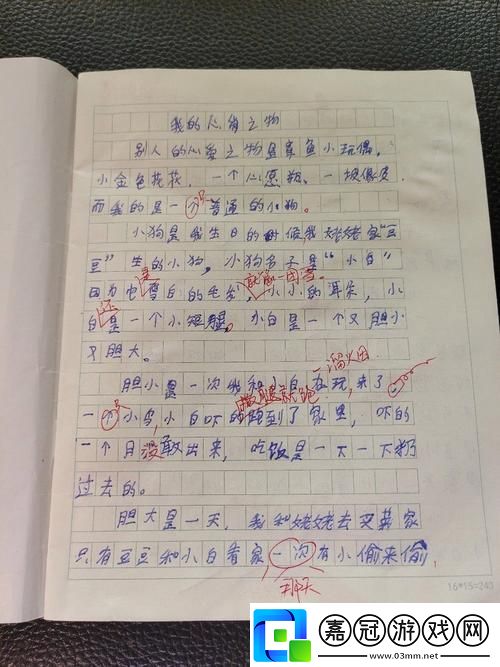 我的心爱之物
别人的心爱之物是章鱼小玩偶,
小金色花花,一个心愿瓶、一
而我的是一只普通的小狗。
小狗是我生日的时候,我姥姥家“豆
豆”生的小狗,小狗名子是“小白”
是 就像一团雪。
因为它雪白的毛发,小小的耳朵,小
还
白是一个小短腿。小白是一个又胆小
又胆大。
一溜火因
胆小是一次我和小白在玩,来了
只 撒腿就跑
一个小鸟,小白吓的跑到了家里,吓的
一个月没敢出来,吃饭是一下一下扔
过去的。
胆大是一天,我和姥姥去买菜家
只有豆豆和小白看家一次有小偷来偷,
那天
16*15=240
嘉冠游戏网
www.03mm.net